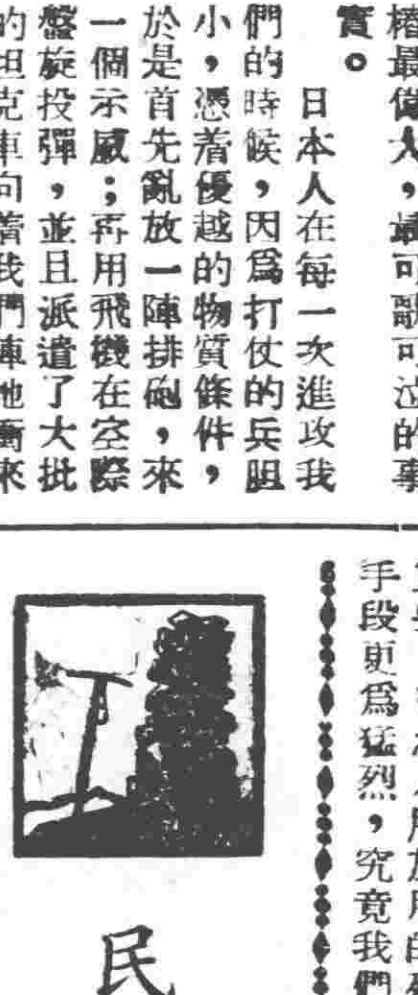 最偉大，最可歌可泣的事
實。
日本人在每一次進攻我
們的時候，因爲打仗的兵胆
小，憑着優越的物質條件，
於是首先亂放一陣排砲，來
一個示威；再用飛機在空際
盤旋投彈，並且派遣了大批
的坦克車向着我們陣地衝來
手段更爲猛烈，究竟我們
民